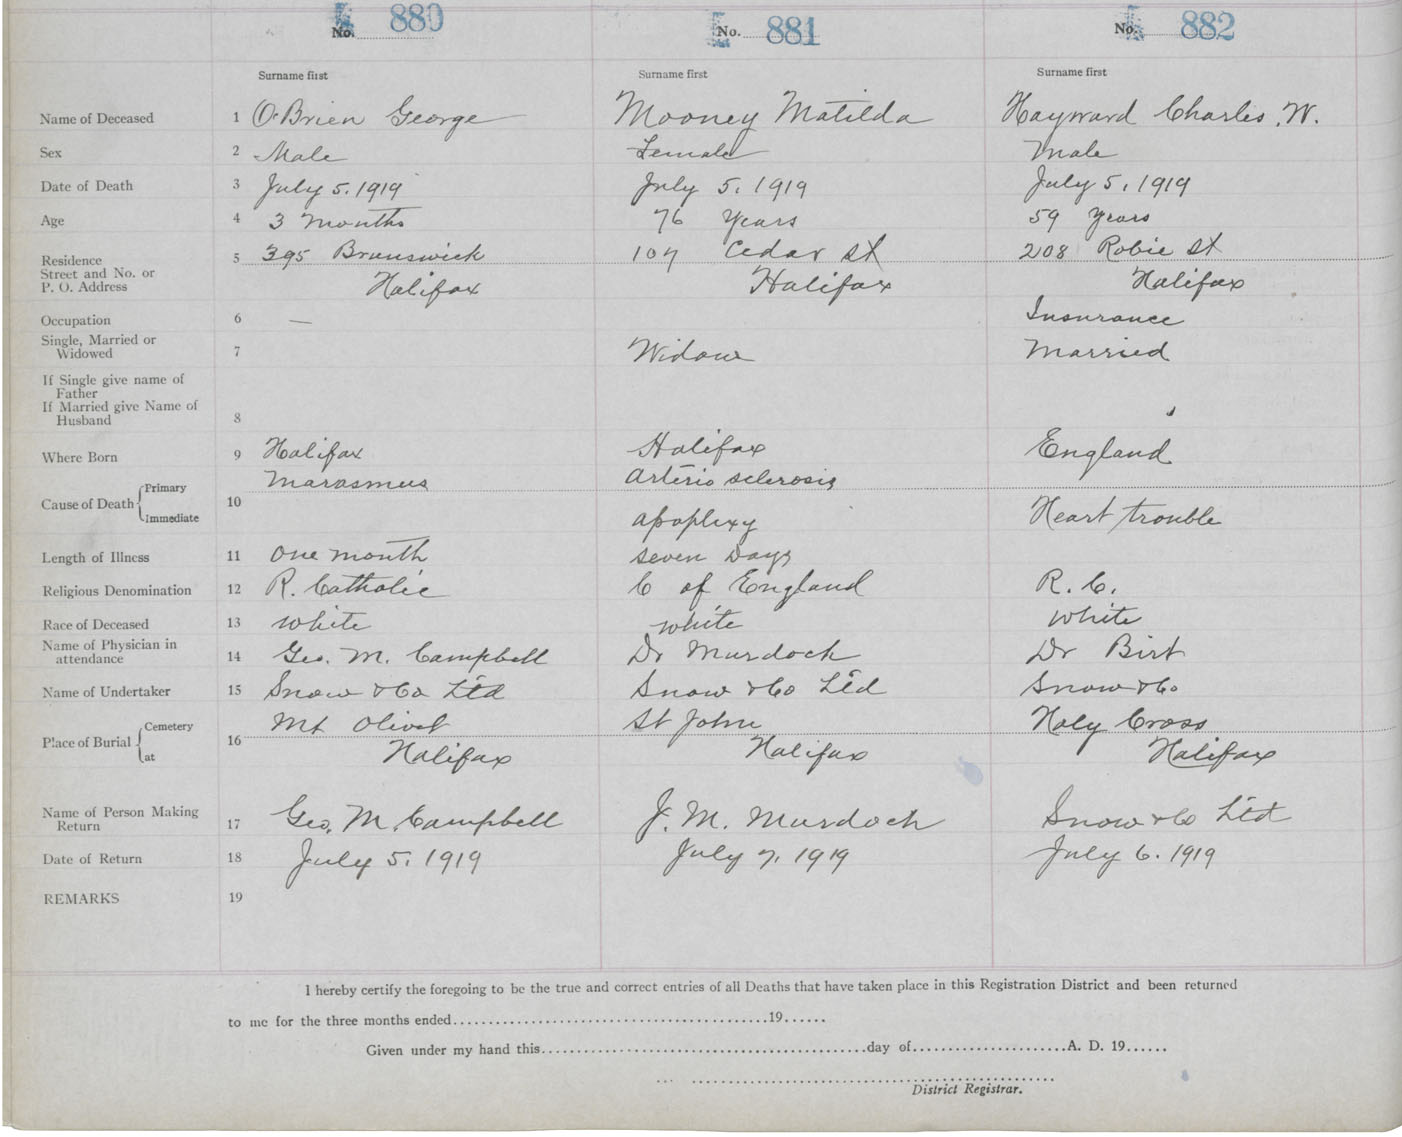 No. 880 No. 881 No. 882
Surname first Surname first Surname first
Name of Deceased 1 O'Brien George Mooney Matilda Hayward Charles. W.
Sex 2 Male Female Male
Date of Death 3 July 5. 1919 July 5. 1919 July 5. 1919
Age 4 3 months 76 years 59 years
Residence
Street and No. or 5 395 Brunswick 107 Cedar St 208 Robie St
P. O. Address Halifax Halifax Halifax
Occupation 6 — Insurance
Single, Married or
Widowed 7 Widow Married
If Single give name of
Father
If Married give Name of
Husband 8
Where Born 9 Halifax Halifax England
Cause of Death Primary 10 Marasmus Arterio sclerosis
Immediate apoplexy Heart trouble
Length of Illness 11 One month seven days
Religious Denomination 12 R. Catholic C of England R. C.
Race of Deceased 13 white white white
Name of Physician in
attendance 14 Geo. M. Campbell Dr Murdoch Dr Birt
Name of Undertaker 15 Snow & Co Ltd Snow & Co Ltd Snow & Co
Place of Burial Cemetery 16 Mt Olivet St John Holy Cross
at Halifax Halifax Halifax
Name of Person Making
Return 17 Geo. M. Campbell J. M. Murdoch Snow & Co Ltd
Date of Return 18 July 5. 1919 July 7. 1919 July 6. 1919
REMARKS 19
I hereby certify the foregoing to be the true and correct entries of all Deaths that have taken place in this Registration District and been returned
to me for the three months ended..........19......
Given under my hand this..........day of..........A. D. 19......
District Registrar.